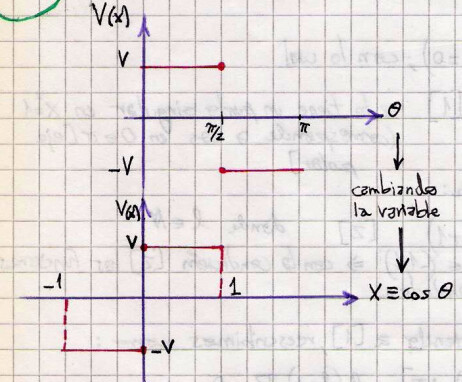 V(x)
V
θ
π/2
π
-V
cambiando
la variable
V(x)
V
-1
1
X ≡ cos θ
-V